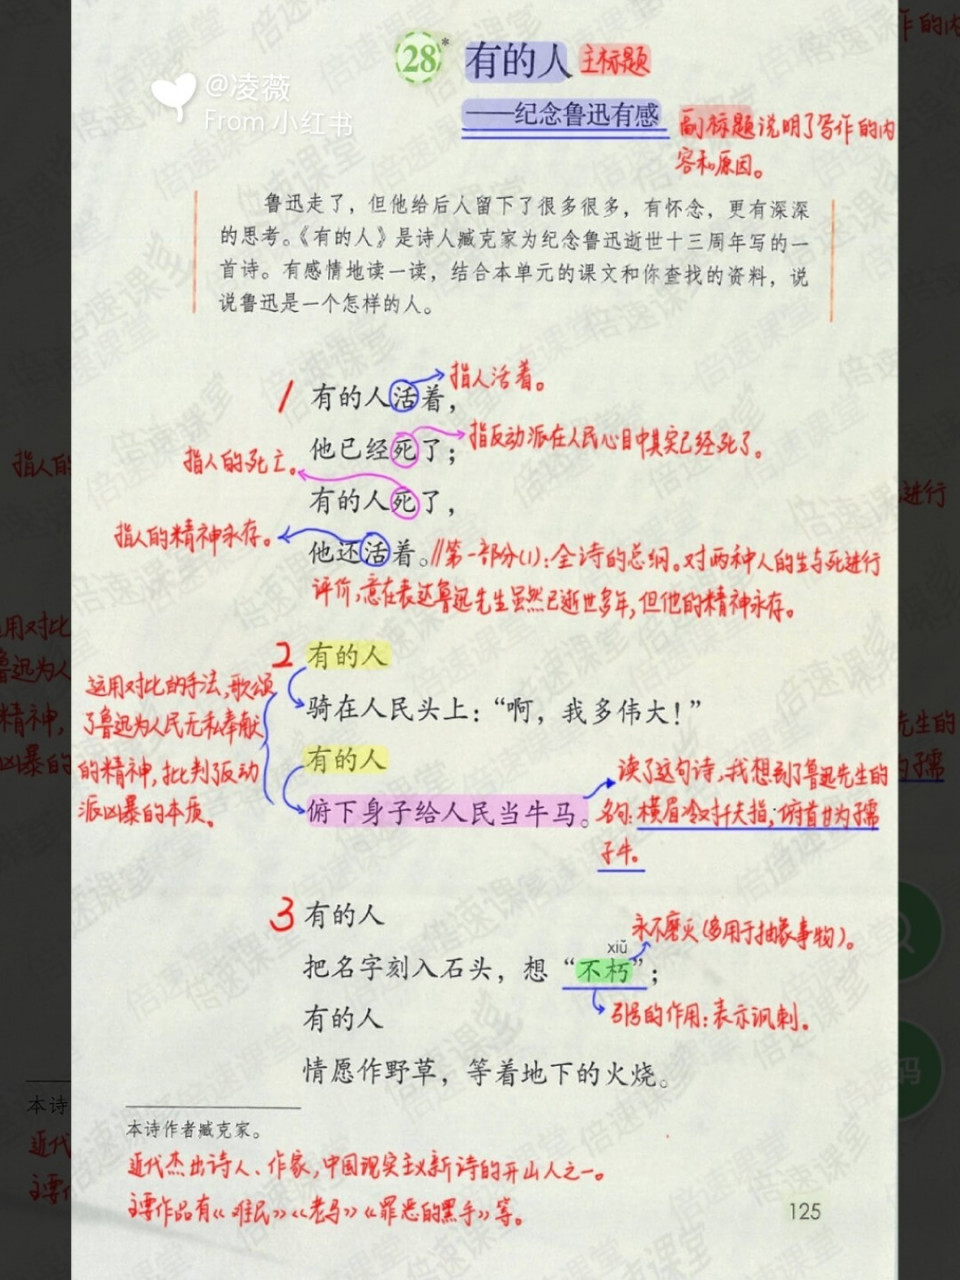 28*
有的人 主标题
——纪念鲁迅有感
副标题说明了写作的内
容和原因。
@凌薇
From 小红书
鲁迅走了，但他给后人留下了很多很多，有怀念，更有深深
的思考。《有的人》是诗人臧克家为纪念鲁迅逝世十三周年写的一
首诗。有感情地读一读，结合本单元的课文和你查找的资料，说
说鲁迅是一个怎样的人。
1 有的人活着，
指人活着。
他已经死了；
指反动派在人民心目中其实已经死了。
指人的死亡。
有的人死了，
指人的精神永存。
他还活着。//第一部分(1)：全诗的总纲。对两种人的生与死进行
评价，意在表达鲁迅先生虽然已逝世多年，但他的精神永存。
2 有的人
骑在人民头上：“啊，我多伟大！”
有的人
俯下身子给人民当牛马。
运用对比的手法，歌颂
了鲁迅为人民无私奉献
的精神，批判了反动
派凶暴的本质。
读了这句诗，我想到了鲁迅先生的
名句：横眉冷对千夫指，俯首甘为孺
子牛。
3 有的人
永不磨灭（多用于抽象事物）。
xiǔ
把名字刻入石头，想“不朽”；
引号的作用：表示讽刺。
有的人
情愿作野草，等着地下的火烧。
本诗作者臧克家。
近代杰出诗人、作家，中国现实主义新诗的开山人之一。
主要作品有《难民》《老马》《罪恶的黑手》等。
125